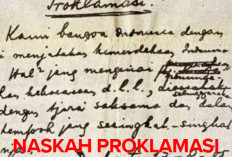 Proklamasi.
Kami bangsa Indonesia dengan
menjatakan kemerdekaan Indonesia
Hal² jang mengenai
kekoeasaan, d.l.l.,
dengan tjara saksama dan dalam
tempoh jang sesingkat-singkat
NASKAH PROKLAMASI